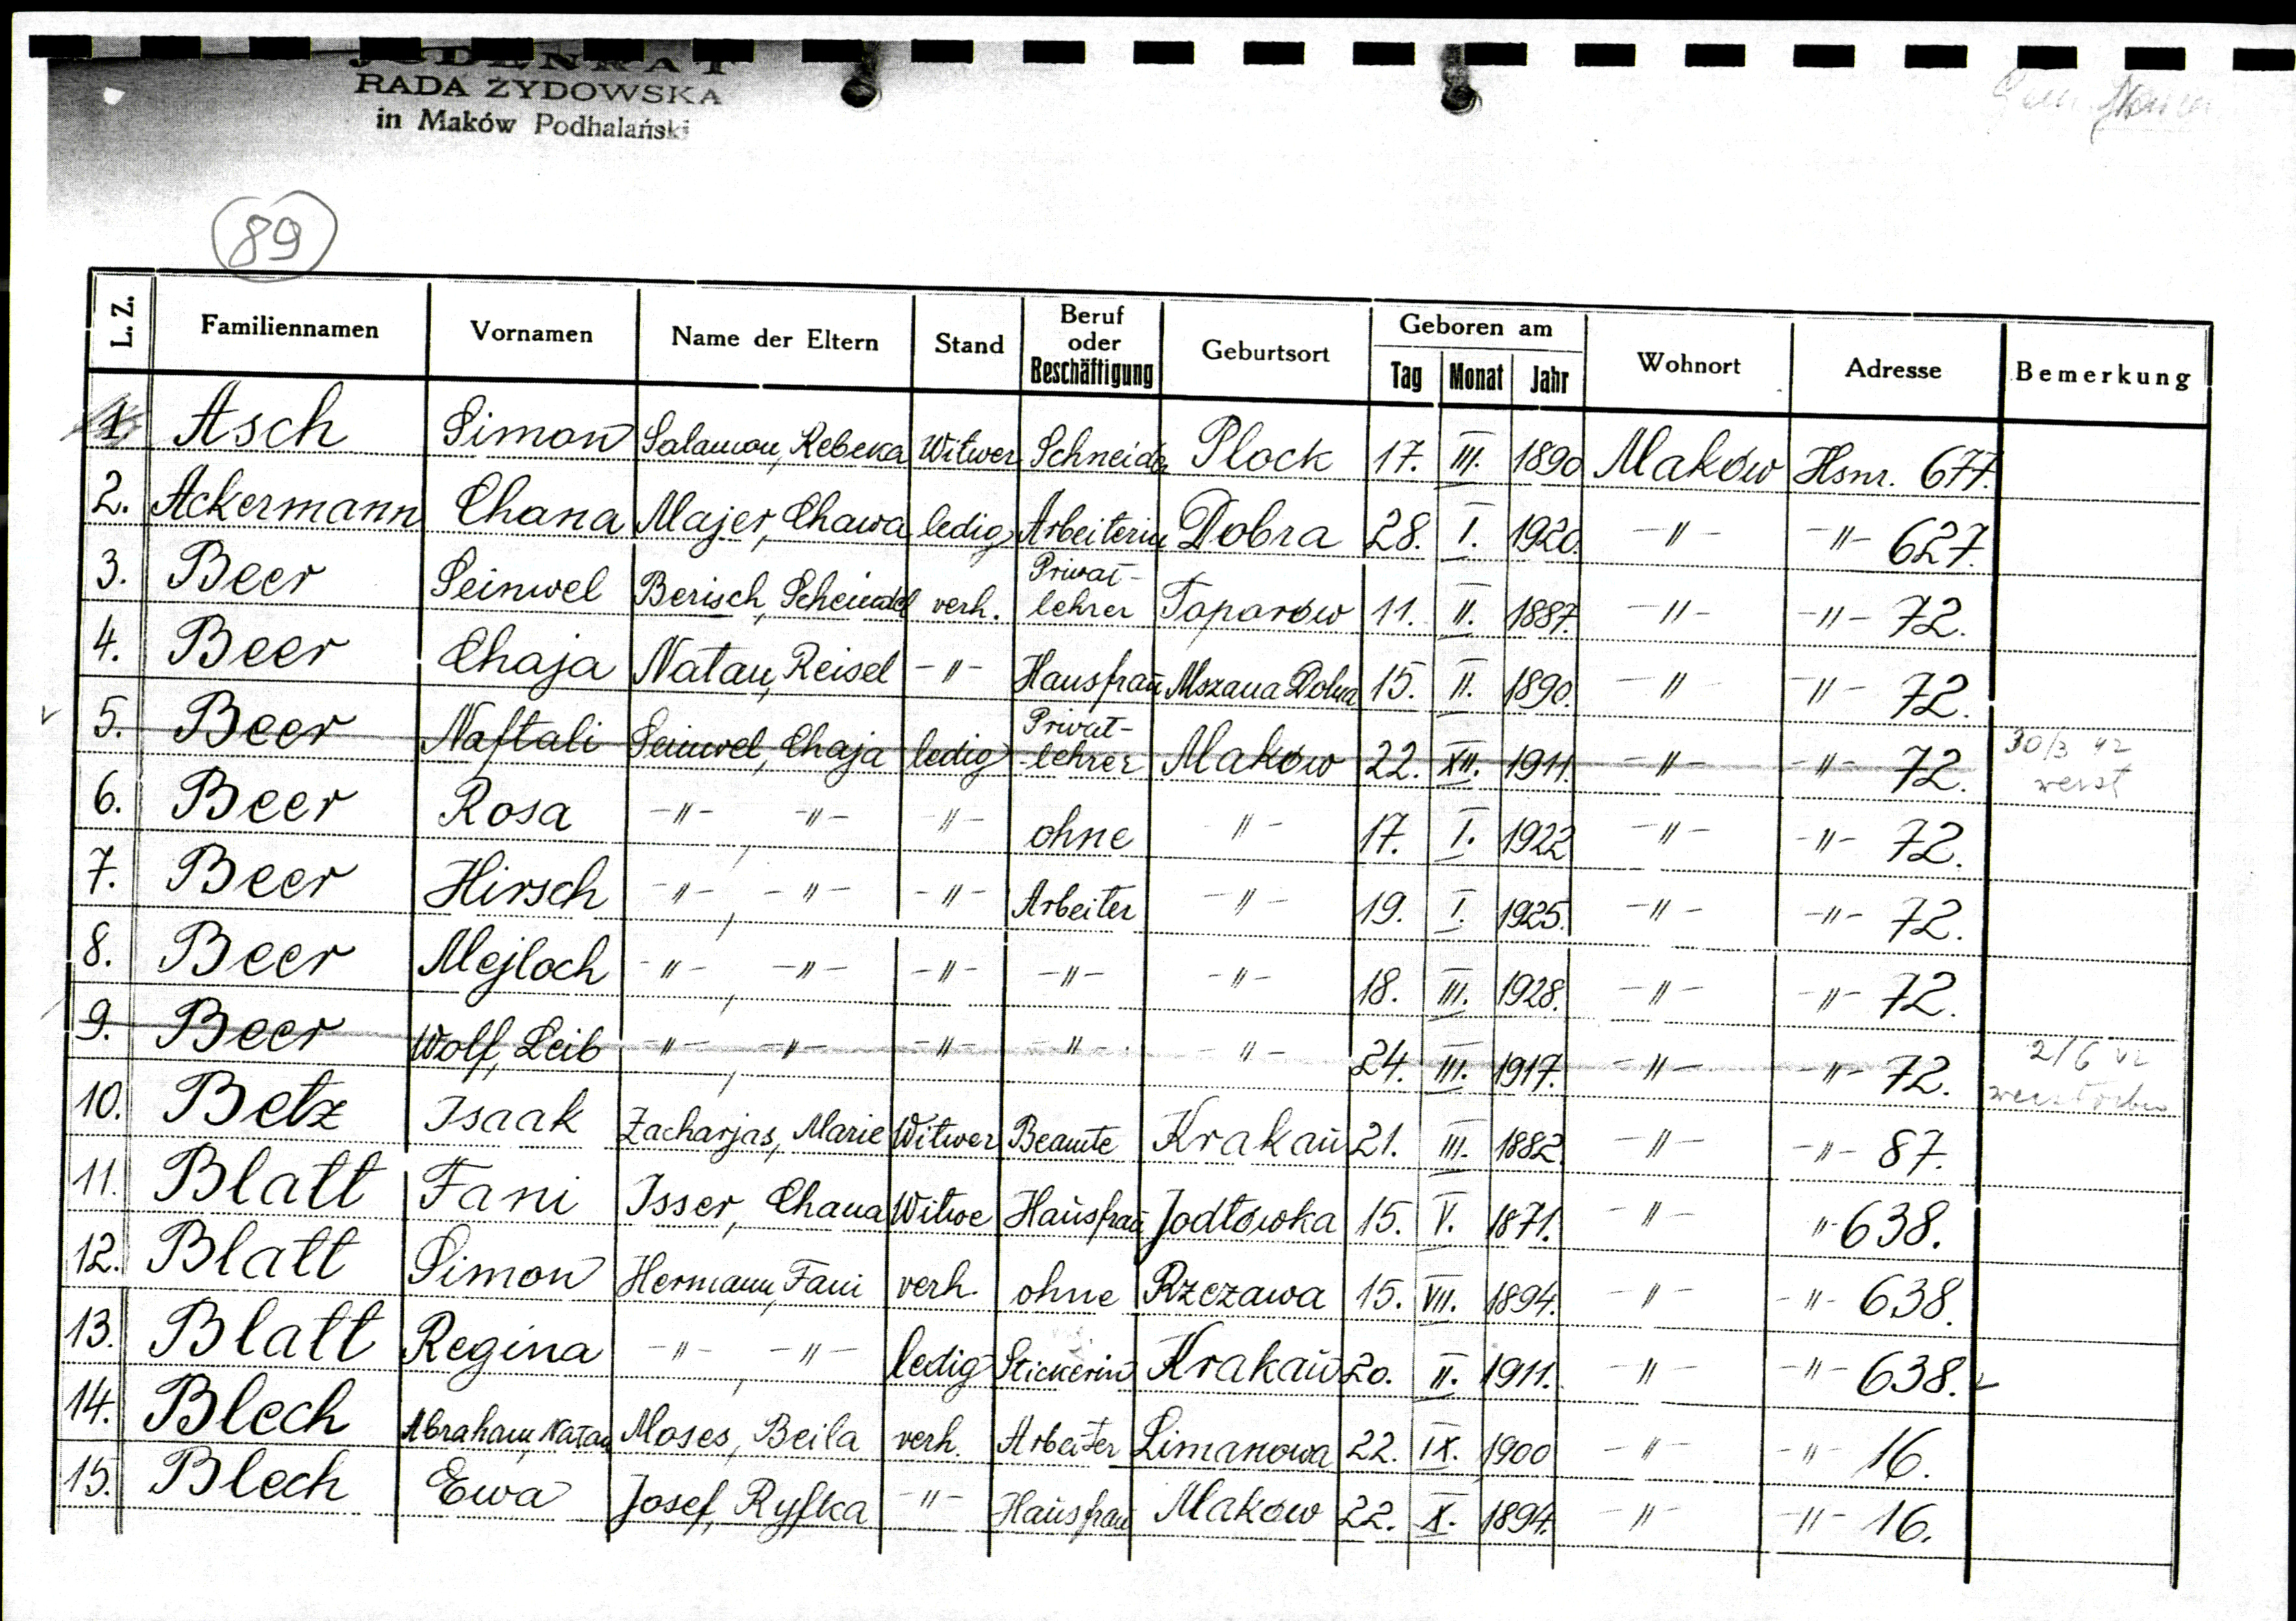 JUDENRAT
RADA ŻYDOWSKA
in Maków Podhalański
89
L. Z. Familiennamen Vornamen Name der Eltern Stand Beruf oder Beschäftigung Geburtsort Geboren am Tag Monat Jahr Wohnort Adresse Bemerkung
1. Asch Simon Salamon, Rebeka Witwer Schneider Plock 17. III. 1890 Maków Hsnr. 677.
2. Ackermann Chana Majer, Chawa ledig Arbeiterin Dobra 28. I. 1920. -"- -"- 627.
3. Beer Seinwel Berisch, Scheindel verh. Privat-lehrer Toporów 11. II. 1887. -"- -"- 72.
4. Beer Chaja Natan, Reisel -"- Hausfrau Mszana Dolna 15. II. 1890. -"- -"- 72.
5. Beer Naftali Seinwel, Chaja ledig Privat-lehrer Maków 22. XII. 1911. -"- -"- 72. 30/3 42
6. Beer Rosa -"- , -"- -"- ohne -"- 17. I. 1922 -"- -"- 72.
7. Beer Hirsch -"- , -"- -"- Arbeiter -"- 19. I. 1925. -"- -"- 72.
8. Beer Mejloch -"- , -"- -"- -"- -"- 18. III. 1928. -"- -"- 72.
9. Beer Wolf, Leib -"- , -"- -"- -"- -"- 24. III. 1917. -"- -"- 72. 2/6
10. Betz Isaak Zacharjas, Marie Witwer Beamte Krakau 21. III. 1882. -"- -"- 87.
11. Blatt Fani Isser, Chana Witwe Hausfrau Jodłówka 15. V. 1871. -"- -"- 638.
12. Blatt Simon Hermann, Fani verh. ohne Rzezawa 15. VII. 1894. -"- -"- 638.
13. Blatt Regina -"- , -"- ledig Stickerin Krakau 20. II. 1911. -"- -"- 638.
14. Blech Abraham, Natan Moses, Beila verh. Arbeiter Limanowa 22. IX. 1900 -"- -"- 16.
15. Blech Ewa Josef, Ryfka -"- Hausfrau Maków 22. X. 1894. -"- -"- 16.